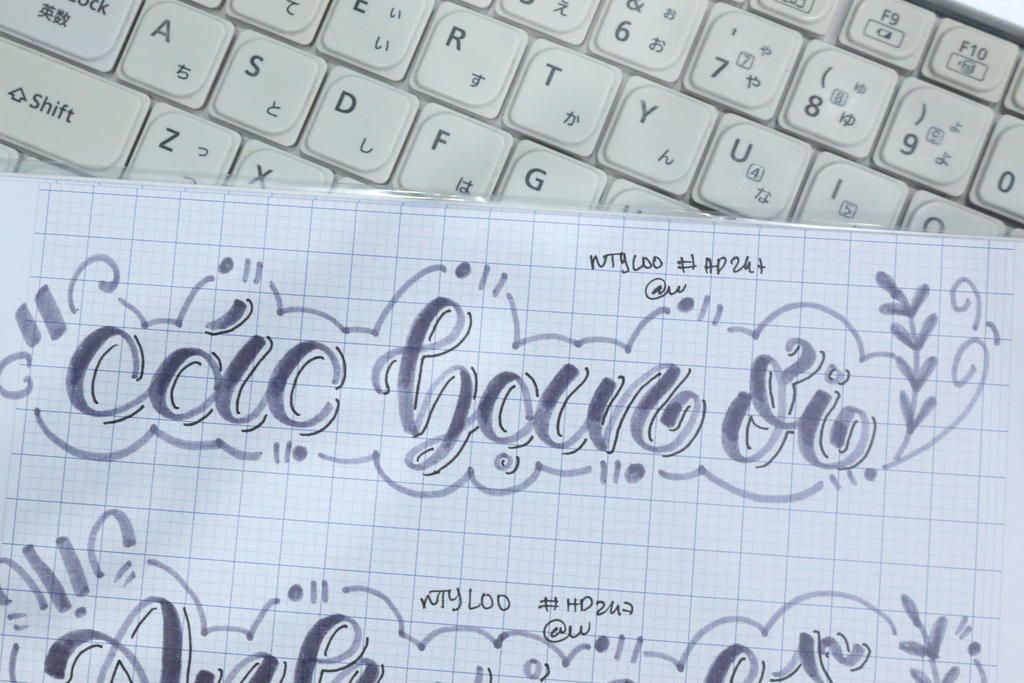 F9 F10
& ぉ 6 お ' ゃ 7 7 や ( ゅ 8 8 ゆ ) ょ 9 9 よ 0
て E ぃ い R す T か Y ん U 4 な I 5
英数 A ち S と D し F は G
⇧Shift Z っ X
NTYLOO #HD247
@w
các bạn ơi
NTYLOO #HD247
@w